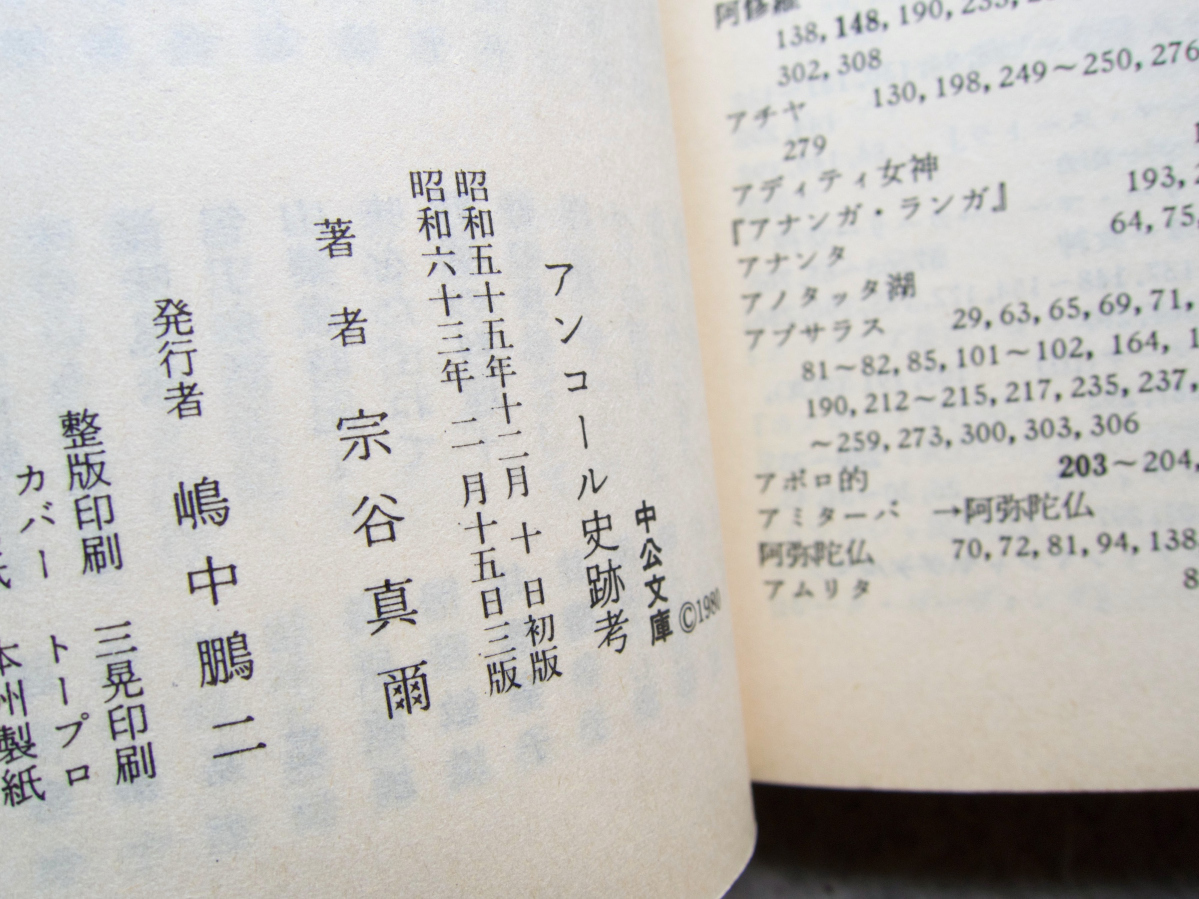 中公文庫 ©1980
アンコール史跡考
昭和五十五年十二月 十 日初版
昭和六十三年 二 月十五日三版
著者 宗谷真爾
発行者 嶋中鵬二
整版印刷 三晃印刷
カバー トープロ
本州製紙
阿修羅
138, 148, 190, 235,
302, 308
アチヤ 130, 198, 249～250, 276
279
アディティ女神
『アナンガ・ランガ』 193,
アナンタ 64, 75,
アノタッタ湖
アプサラス 29, 63, 65, 69, 71,
81～82, 85, 101～102, 164,
190, 212～215, 217, 235, 237,
～259, 273, 300, 303, 306
アポロ的 203～204,
アミターバ →阿弥陀仏
阿弥陀仏 70, 72, 81, 94, 138,
アムリタ